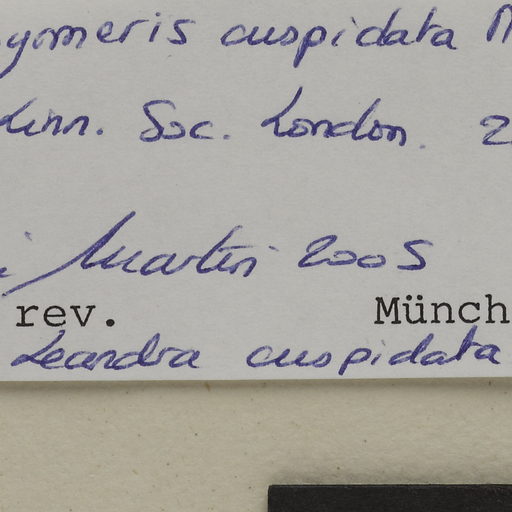 ymeris cuspidata
Linn. Soc. London. 2
Martin 2005
rev. Münch
Leandra cuspidata